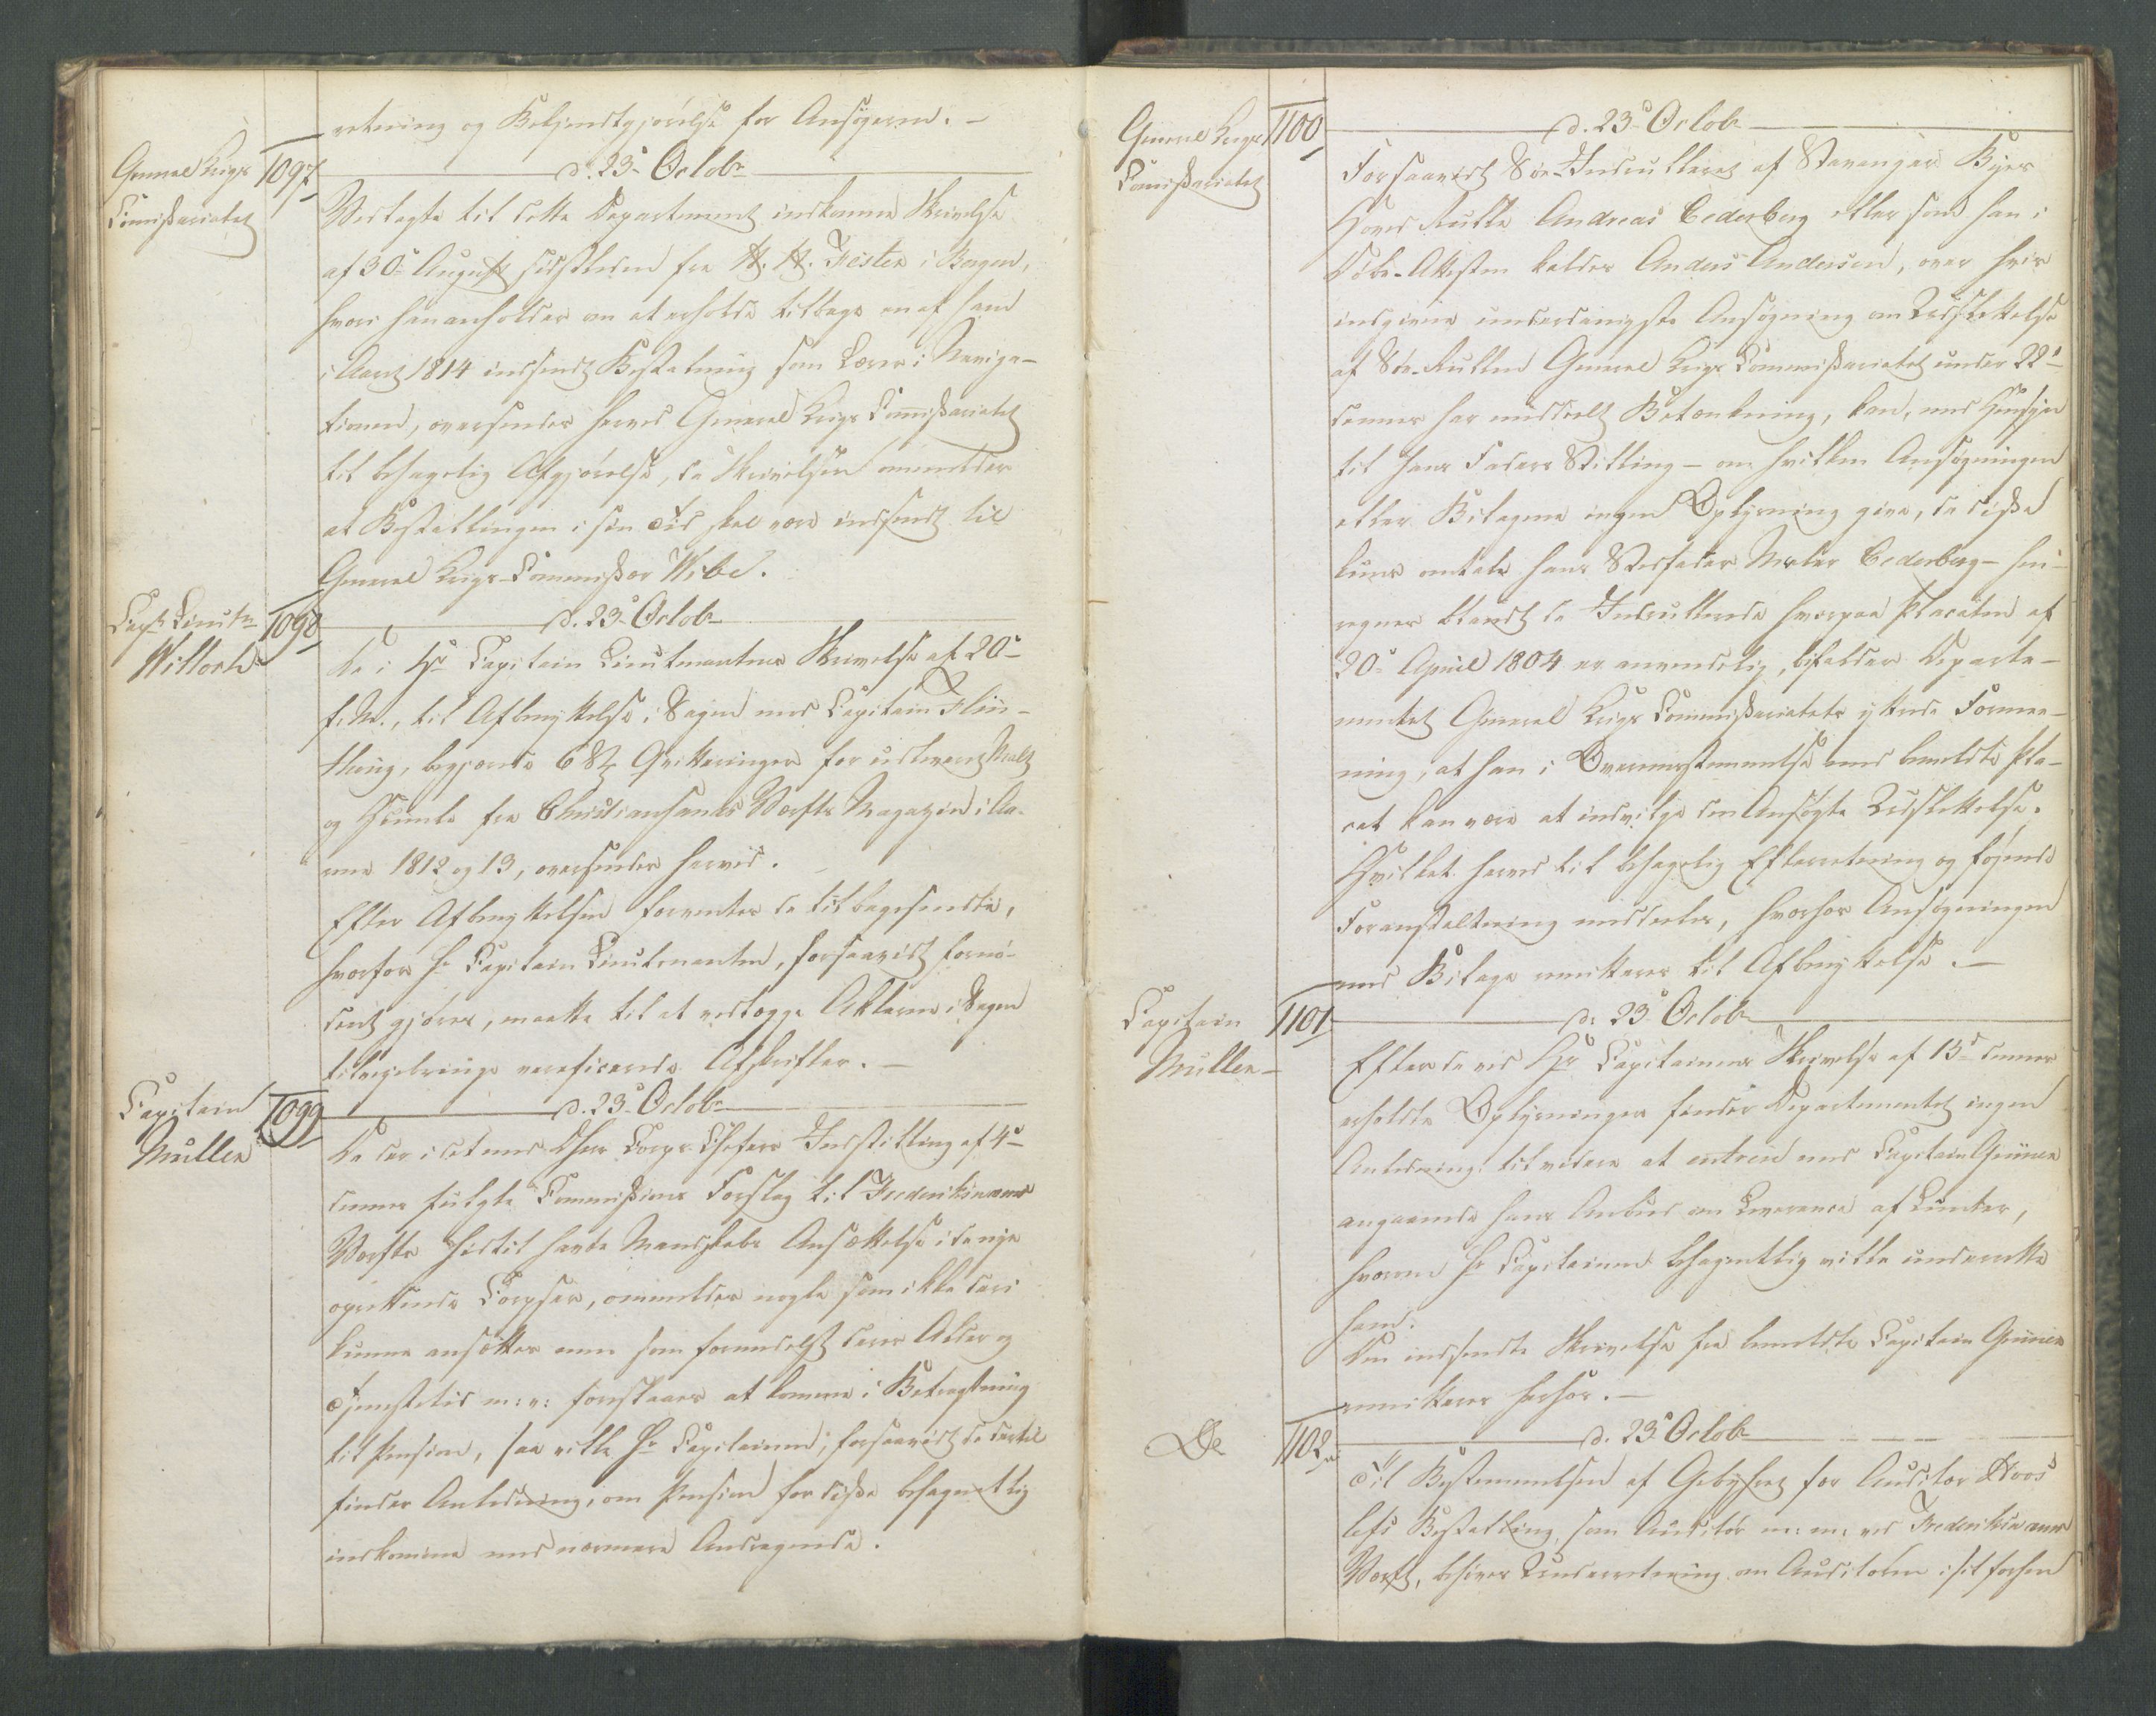 retning og Bekjendtgjørelse for Ansøgeren. –
General Krigs
Commissariatet
1097
d. 23de Octobr
Vedlagte til dette Departement indkomne Skrivelse
af 30te August sidstleden fra H. H. Fester i Bergen,
hvori han anholder om at erholde tilbage en af ham
i Aaret 1814 indsendt Bestalning som Lærer i Naviga-
tionen, oversendes herved General Krigs Commissariatet
til behagelig Afgjørelse, da Skrivelsen ommelder
at Bestallingen i sin Tid skal være indsendt til
General Krigs-Commissær Wibe.
Capt: Lieutn
Willoch
1098
d. 23de Octobr
De i Hr Capitain Lieutenantens Skrivelse af 20de
d. M., til Afbenyttelse i Sagen mod Capitain Flin-
thoug, begjærede 6 Qvitteringer for udleveret Malt
og Humle fra Christiansands Værfts Magazin i Aa-
rene 1812 og 13, oversendes herved.
Efter Afbenyttelsen forventes de tilbagesendte,
hvorfor Hr Capitain Lieutenanten, forsaavidt fornø-
dent gjøres, maatte til at vedlægge Akterne i Sagen
tilveiebringe vereficerede Afskrifter. –
Capitain
Müller
1099
d. 23de Octobr
Da der i det med Hr Corps Chefens Indstilling af 4de
dennes fulgte Commissions Forslag til Frederiksværns
Værfts hidtil havte Mandskabs Ansættelse i de nye
oprettende Corpser, ommeldes nogle som ikke deri
kunne ansættes men som formedelst deres Alder og
Tjenestetid m: v: foreslaaes at komme i Betragtning
til Pension, saa ville Hr Capitainen, forsaavidt De dertil
finder Anledning, om Pension for disse behageligt
indkomme med nærmere Andragende.
General Krigs
Commissariatet
1100
d. 23de Octobr
Forsaavidt Søe-Indrulleret af Stavanger Byes
Hoved Rulle Andreas Cederberg eller som han i
Døbe-Attesten kaldes Anders Andersen, over hvis
indgivne underdanigste Ansøgning om Udslettelse
af Søe-Rullen General Krigs Commissariatet under 22de
dennes har meddeelt Betænkning, kan, med Hensyn
til hans Faders Stilling – om hvilken Ansøgningen
eller Bilagene ingen Oplysning give, da disse
kuns omtale hans Stedfader Maler Cederberg – hen-
regnes blandt de Indrullerede hvorpaa Placaten af
20de April 1804 er anvendelig, bifalder Departe-
mentet General Krigs Commissariatets yttrede Forme-
ning, at han i Overeensstemmelse med bemeldte Pla-
cat kan være at indvilge den Ansøgte Udslettelse.
Hvilket herved til behagelig Efterretning og føiende
Foranstaltning meddeeles, hvorhos Ansøgningen
med Bilage remitteres til Afbenyttelse. –
Capitain
Müller –
1101
d. 23de Octobr
Efter de ved Hr Capitainens Skrivelse af 13de dennes
erholdte Oplysninger finder Departementet ingen
Anledning til videre at entrere med Capitain Grüner
angaaende hans Anbud om Leverance af Lunter,
hvorom Hr Capitainen behageligt ville underrette
ham.
Den indsendte Skrivelse fra bemeldte Capitain Grüner
remitteres herhos. –
Do
1102
d. 23 Octobr
Til Bestemmelsen af Gebyhret for Auditør Roos
lefs Bestalling, som Auditør m: m: ved Frederiksværns
Værft, behøves Underretning om Auditøren i sit forhen